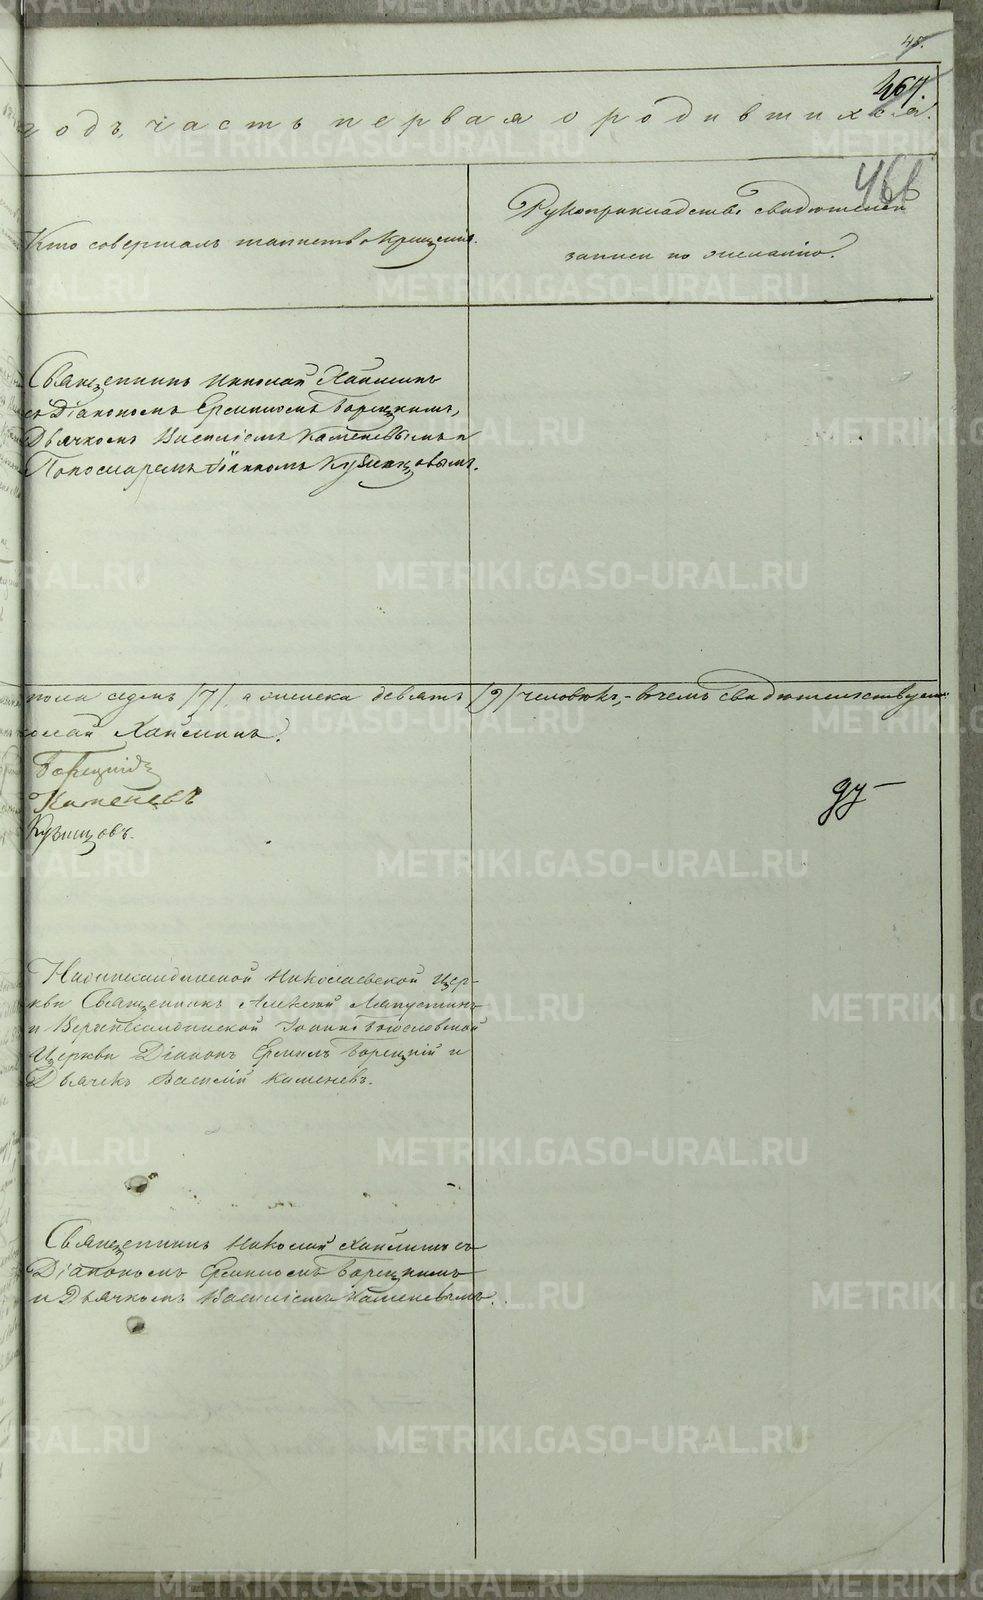 48.
467.
годъ, часть первая о родившихся.
466
Кто совершалъ таинство крещенія.
Рукоприкладство свидѣтелей
записи по желанію.
Священникъ Николай Хайминъ
съ Діакономъ Ермиломъ Борецкимъ,
Дьячкомъ Василіемъ Каменевымъ и
Пономаремъ Іоанномъ Кузнецовымъ.
пола седмь /7/, а женска девять /9/ человѣкъ, - въ чемъ свидѣтельствуемъ:
колай Хайминъ.
Борецкій
Каменевъ
Кузнецовъ.
ду -
Николаевской Цер-
кви Священникъ Алексѣй Ляпустинъ
и Іоанно Богословской
Церкви Діаконъ Ермилъ Борецкій и
Дьячекъ Василій Каменевъ.
Священникъ Николай Хайминъ съ
Діакономъ Ермиломъ Борецкимъ
и Дьячкомъ Василіемъ Каменевымъ.
METRIKI.GASO-URAL.RU